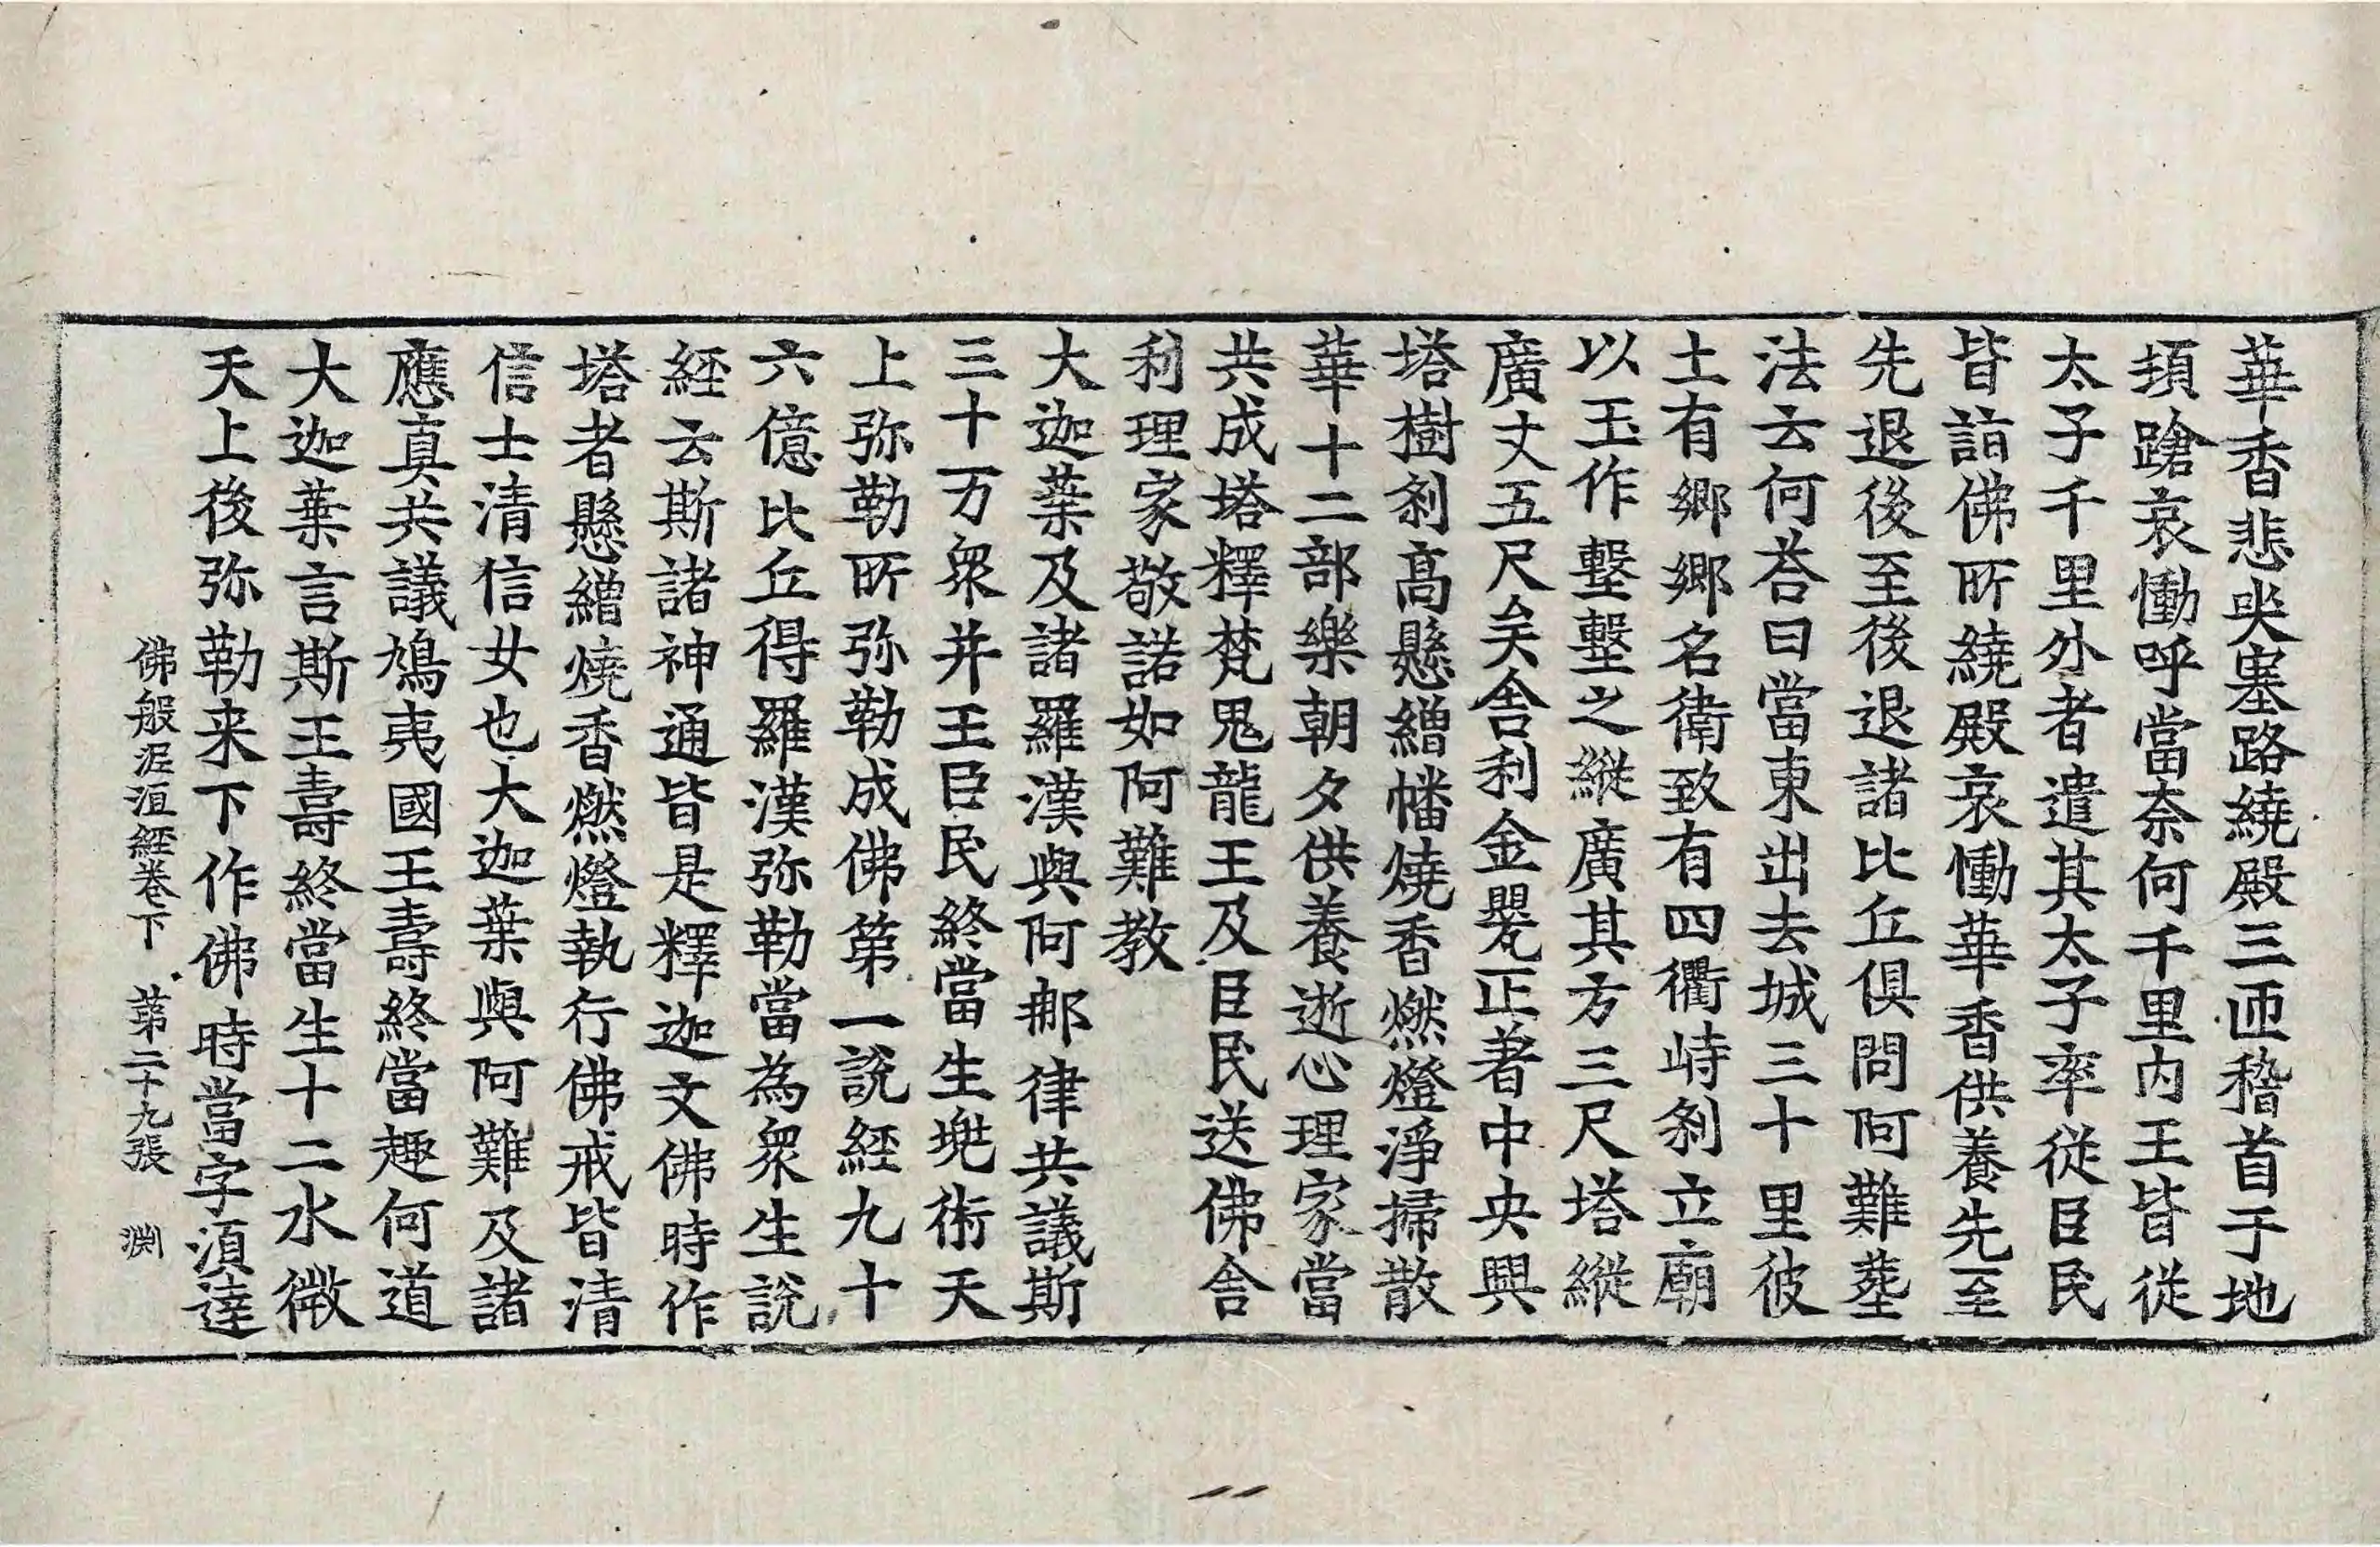 華香悲哭塞路繞殿三匝稽首于地
頊蹌哀慟呼當奈何千里內王皆從
太子千里外者遣其太子率從臣民
皆詣佛所繞殿哀慟華香供養先至
先退後至後退諸比丘俱問阿難葬
法云何荅曰當東出去城三十里彼
土有鄉鄉名衛致有四衢峙剎立廟
以玉作墼墼之縱廣其方三尺塔縱
廣丈五尺矣舍利金甖正著中央興
塔樹剎高懸繒幡燒香燃燈淨掃散
華十二部樂朝夕供養逝心理家當
共成塔釋梵鬼龍王及臣民送佛舍
利理家敬諾如阿難教
大迦葉及諸羅漢與阿那律共議斯
三十万眾并王臣民終當生兜術天
上弥勒所弥勒成佛第一說經九十
六億比丘得羅漢弥勒當為眾生說
經云斯諸神通皆是釋迦文佛時作
塔者懸繒燒香燃燈執行佛戒皆清
信士清信女也大迦葉與阿難及諸
應真共議鳩夷國王壽終當趣何道
大迦葉言斯王壽終當生十二水微
天上後弥勒来下作佛時當字須達
佛般泥洹經卷下　第二十九張　渊